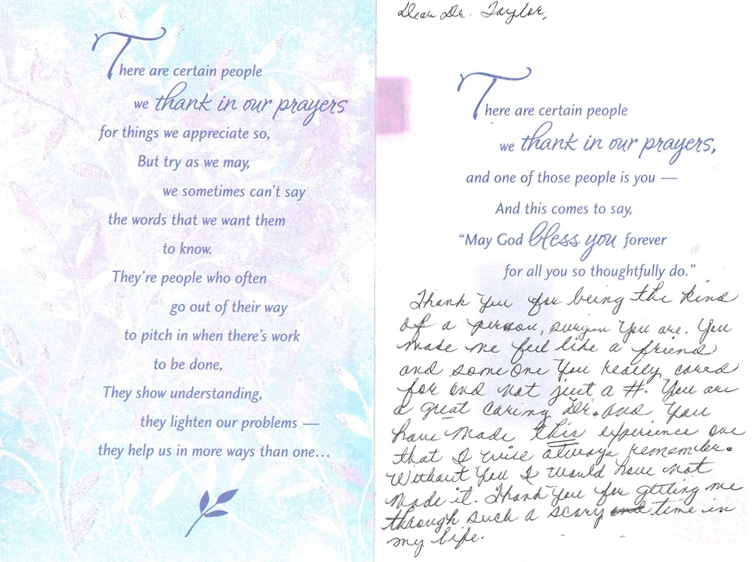 There are certain people
we thank in our prayers
for things we appreciate so,
But try as we may,
we sometimes can't say
the words that we want them
to know.
They're people who often
go out of their way
to pitch in when there's work
to be done,
They show understanding,
they lighten our problems —
they help us in more ways than one...
Dear Dr. Taylor,
There are certain people
we thank in our prayers,
and one of those people is you —
And this comes to say,
"May God bless you forever
for all you so thoughtfully do."
Thank you for being the kind
of a person, surgen you are. You
made me feel like a friend
and someone you really cared
for and not just a #. You are
a great caring Dr. and you
have made this experience one
that I will always remember.
Without you I would have not
made it. Thank you for getting me
through such a scary and time in
my life.